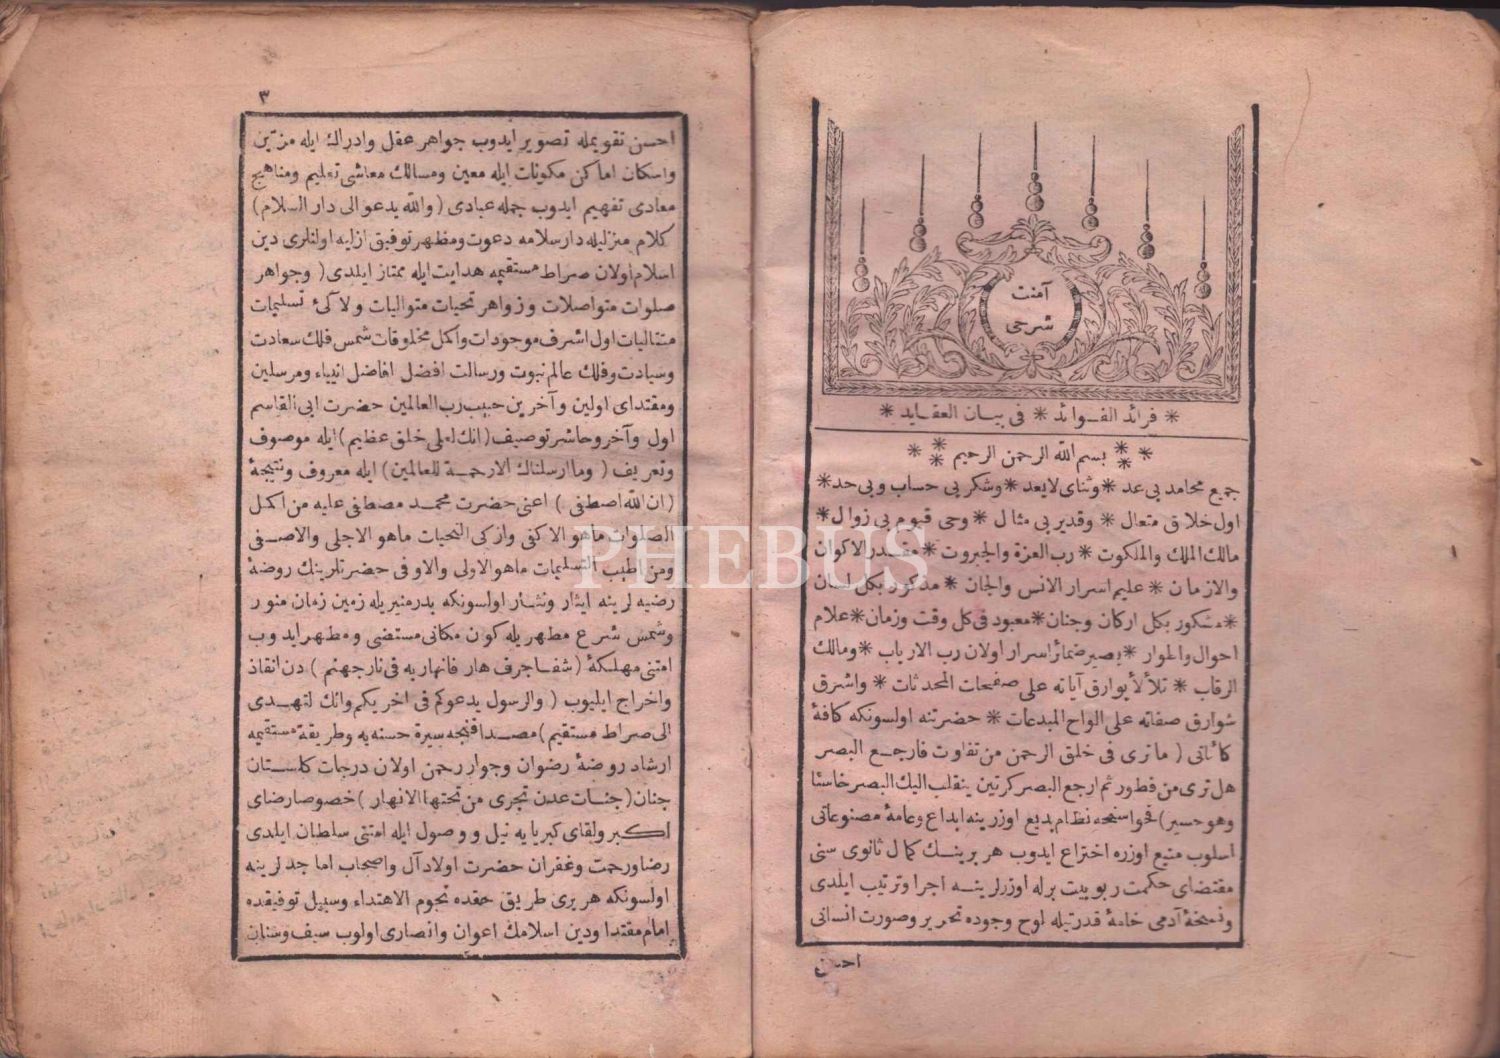 آمنت
شرحی
* فرائد الفوائد * فی بیان العقاید *
* * * بسم الله الرحمن الرحیم * * *
جمیع محامد بی عد * وثنای لایعد * وشکر بی حساب وبی حد *
اول خلاق متعال * وقدیر بی مثال * وحی قیوم بی زوال *
مالك الملك والملكوت * رب العزة والجبروت * مقدر الاکوان
والازمان * علیم اسرار الانس والجان * مذکور بكل لسان
* مشکور بكل ارکان وجنان * معبود فی کل وقت وزمان * علام
احوال واطوار * بصیر ضمائر اسرار اولان رب الارباب * ومالك
الرقاب * تلألأ بوارق آیاته علی صفحات المحدثات * واشرق
شوارق صفاته علی الواح المبدعات * حضرتنه اولسونکه کافهٔ
کائناتی ( ماتری فی خلق الرحمن من تفاوت فارجع البصر
هل تری من فطور ثم ارجع البصر کرتین ینقلب الیك البصر خاسئا
وهو حسیر) فحواسنجه نظام بدیع اوزرینه ابداع وعامهٔ مصنوعاتی
اسلوب منیع اوزره اختراع ایدوب هر برینك کمال ثانوی سنی
مقتضای حکمت ربوبیت برله اوزرلرینه اجرا وترتیب ایلدی
ونسخهٔ آدمی خامهٔ قدرتیله لوح وجوده تحریر وصورت انسانی
احسن
٣
احسن تقویمله تصویر ایدوب جواهر عقل وادراك ایله مزین
واسکان اماکن مکونات ایله معین ومسالك معاشی تعلیم ومناهج
معادی تفهیم ایدوب جمله عبادی ( والله یدعو الی دار السلام )
کلام منزلیله دار سلامه دعوت ومظهر توفیق ازلیه اولنلری دین
اسلام اولان صراط مستقیمه هدایت ایله ممتاز ایلدی ( وجواهر
صلوات متواصلات وزواهر تحیات متوالیات ولآلئ تسلیمات
متتالیات اول اشرف موجودات واکمل مخلوقات شمس فلك سعادت
وسیادت وفلك عالم نبوت ورسالت افضل افاضل انبیاء ومرسلین
ومقتدای اولین وآخرین حبیب رب العالمین حضرت ابی القاسم
اول وآخر وحاشر توصیف ( انك لعلی خلق عظیم ) ایله موصوف
وتعریف ( وما ارسلناك الا رحمة للعالمین ) ایله معروف ونتیجهٔ
( ان الله اصطفی ) اعنی حضرت محمد مصطفی علیه من اکمل
الصلوات ماهو الاکفی وازکی التحیات ماهو الاجلی والاصفی
ومن اطیب التسلیمات ماهو الاولی والاوفی حضرتلرینك روضهٔ
رضیه لرینه ایثار ونثار اولسونکه بدر منیریله زمین زمان منور
وشمس شرع مطهریله کون مکانی مستضی ومطهر ایدوب
امتنی مهلکهٔ ( شفا جرف هار فانهار به فی نار جهنم ) دن انقاذ
واخراج ایلیوب ( والرسول یدعوکم فی اخریکم وانك لتهدی
الی صراط مستقیم ) مصداقنجه سیرة حسنه یه وطریقهٔ مستقیمه
ارشاد روضهٔ رضوان وجوار رحمن اولان درجات کلستان
جنان ( جنات عدن تجری من تحتها الانهار ) خصوصا رضای
اکبر ولقای کبریایه نیل ووصول ایله امتنی سلطان ایلدی
رضا ورحمت وغفران حضرت اولاد آل واصحاب امجادلرینه
اولسونکه هر بری طریق حقده نجوم الاهتداء وسبیل توفیقده
امام مقتدا ودین اسلامك اعوان وانصاری اولوب سیف وسنان
PHEBUS